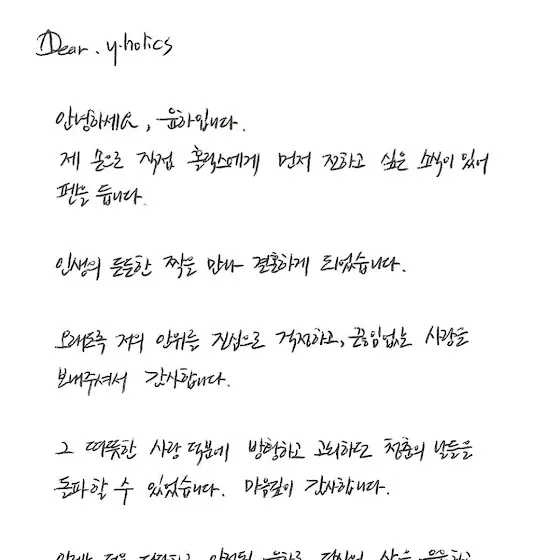 Dear. y.holics
안녕하세요, 윤하입니다.
제 손으로 직접 홀릭스에게 먼저 전하고 싶은 소식이 있어
펜을 듭니다.
인생의 든든한 짝을 만나 결혼하게 되었습니다.
오래도록 저의 안위를 진심으로 걱정하고, 끊임없는 사랑을
보내주셔서 감사합니다.
그 따뜻한 사랑 덕분에 방황하고 고뇌하던 청춘의 날들을
돌파할 수 있었습니다. 마음깊이 감사합니다.